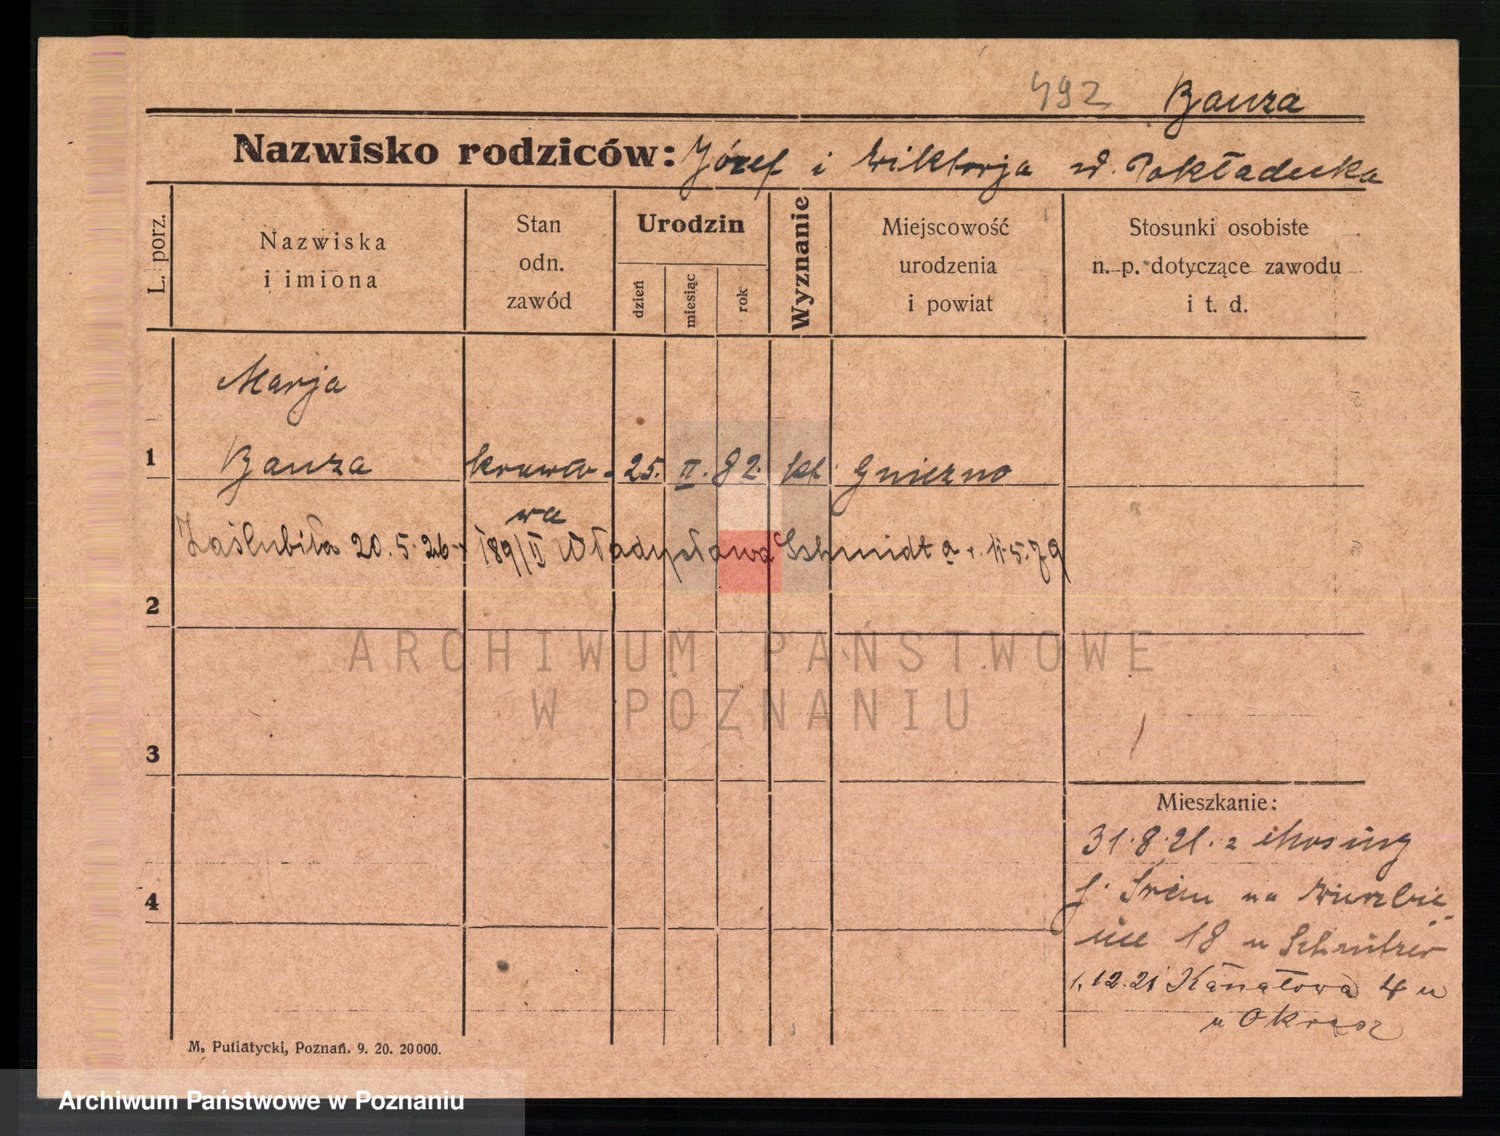 492 Banza
Nazwisko rodziców: Józef i Wiktorja z d. Pokładecka
L. porz.
Nazwiska
i imiona
Stan
odn.
zawód
Urodzin
dzień
miesiąc
rok
Wyznanie
Miejscowość
urodzenia
i powiat
Stosunki osobiste
n. p. dotyczące zawodu
i t. d.
Marja
1 Banza krawco- 25. II. 82. kt. Gniezno
wa
Zaślubiła 20.5.26 r 189/II Władysława Schmidt a r. 11.5.79
2
3
4
Mieszkanie:
31.8.21. z
Śrem na Wierzbię-
cice 18 u
1.12.21 Kanałowa 4 u
u Okręsz
M. Putiatycki, Poznań. 9. 20. 20000.
ARCHIWUM PAŃSTWOWE
W POZNANIU
Archiwum Państwowe w Poznaniu